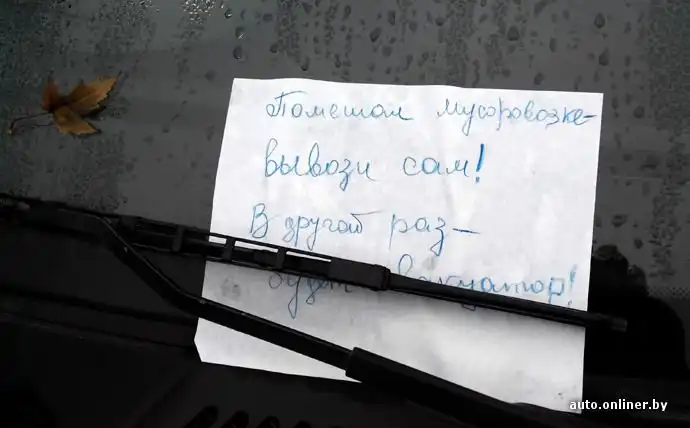 Помешал мусоровозке-
вывози сам!
В другой раз —
будет эвакуатор!
auto.onliner.by